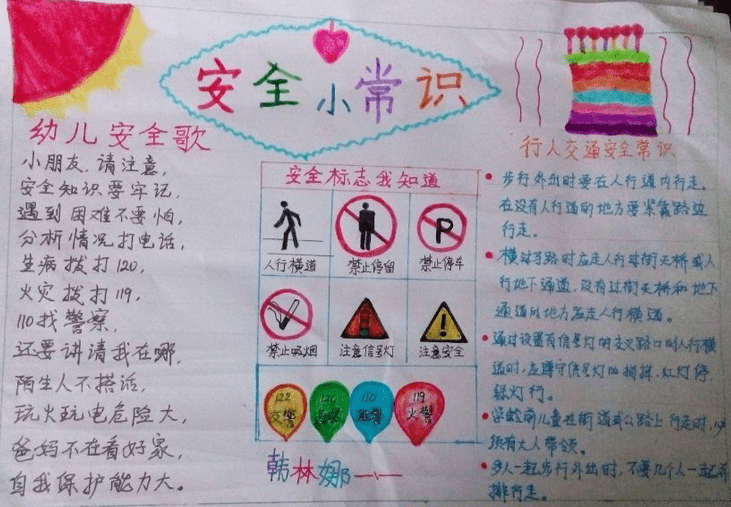 安全小常识
幼儿安全歌
小朋友,请注意,
安全知识要牢记,
遇到困难不要怕,
分析情况打电话,
生病拨打120,
火灾拨打119,
110找警察,
还要讲请我在哪,
陌生人不搭话,
玩火玩电危险大,
爸妈不在看好家,
自我保护能力大。
安全标志我知道
P
人行横道 禁止停留 禁止停车
禁止吸烟 注意信号灯 注意安全
122 120 110 119
交警 急救 匪警 火警
韩林娜
行人交通安全常识
步行外出时要在人行道内行走。
在没有人行道的地方要紧靠路边
行走。
横过马路时应走人行过街天桥或人
行地下通道,没有过街天桥和地下
通道的地方应走人行横道。
通过设置有信号灯的交叉路口的人行横
道时,应遵守信号灯的指挥,红灯停,
绿灯行。
学龄前儿童在街道或公路上行走时,
须有大人带领。
多人一起步行外出时,不要几个人一起并
排行走。